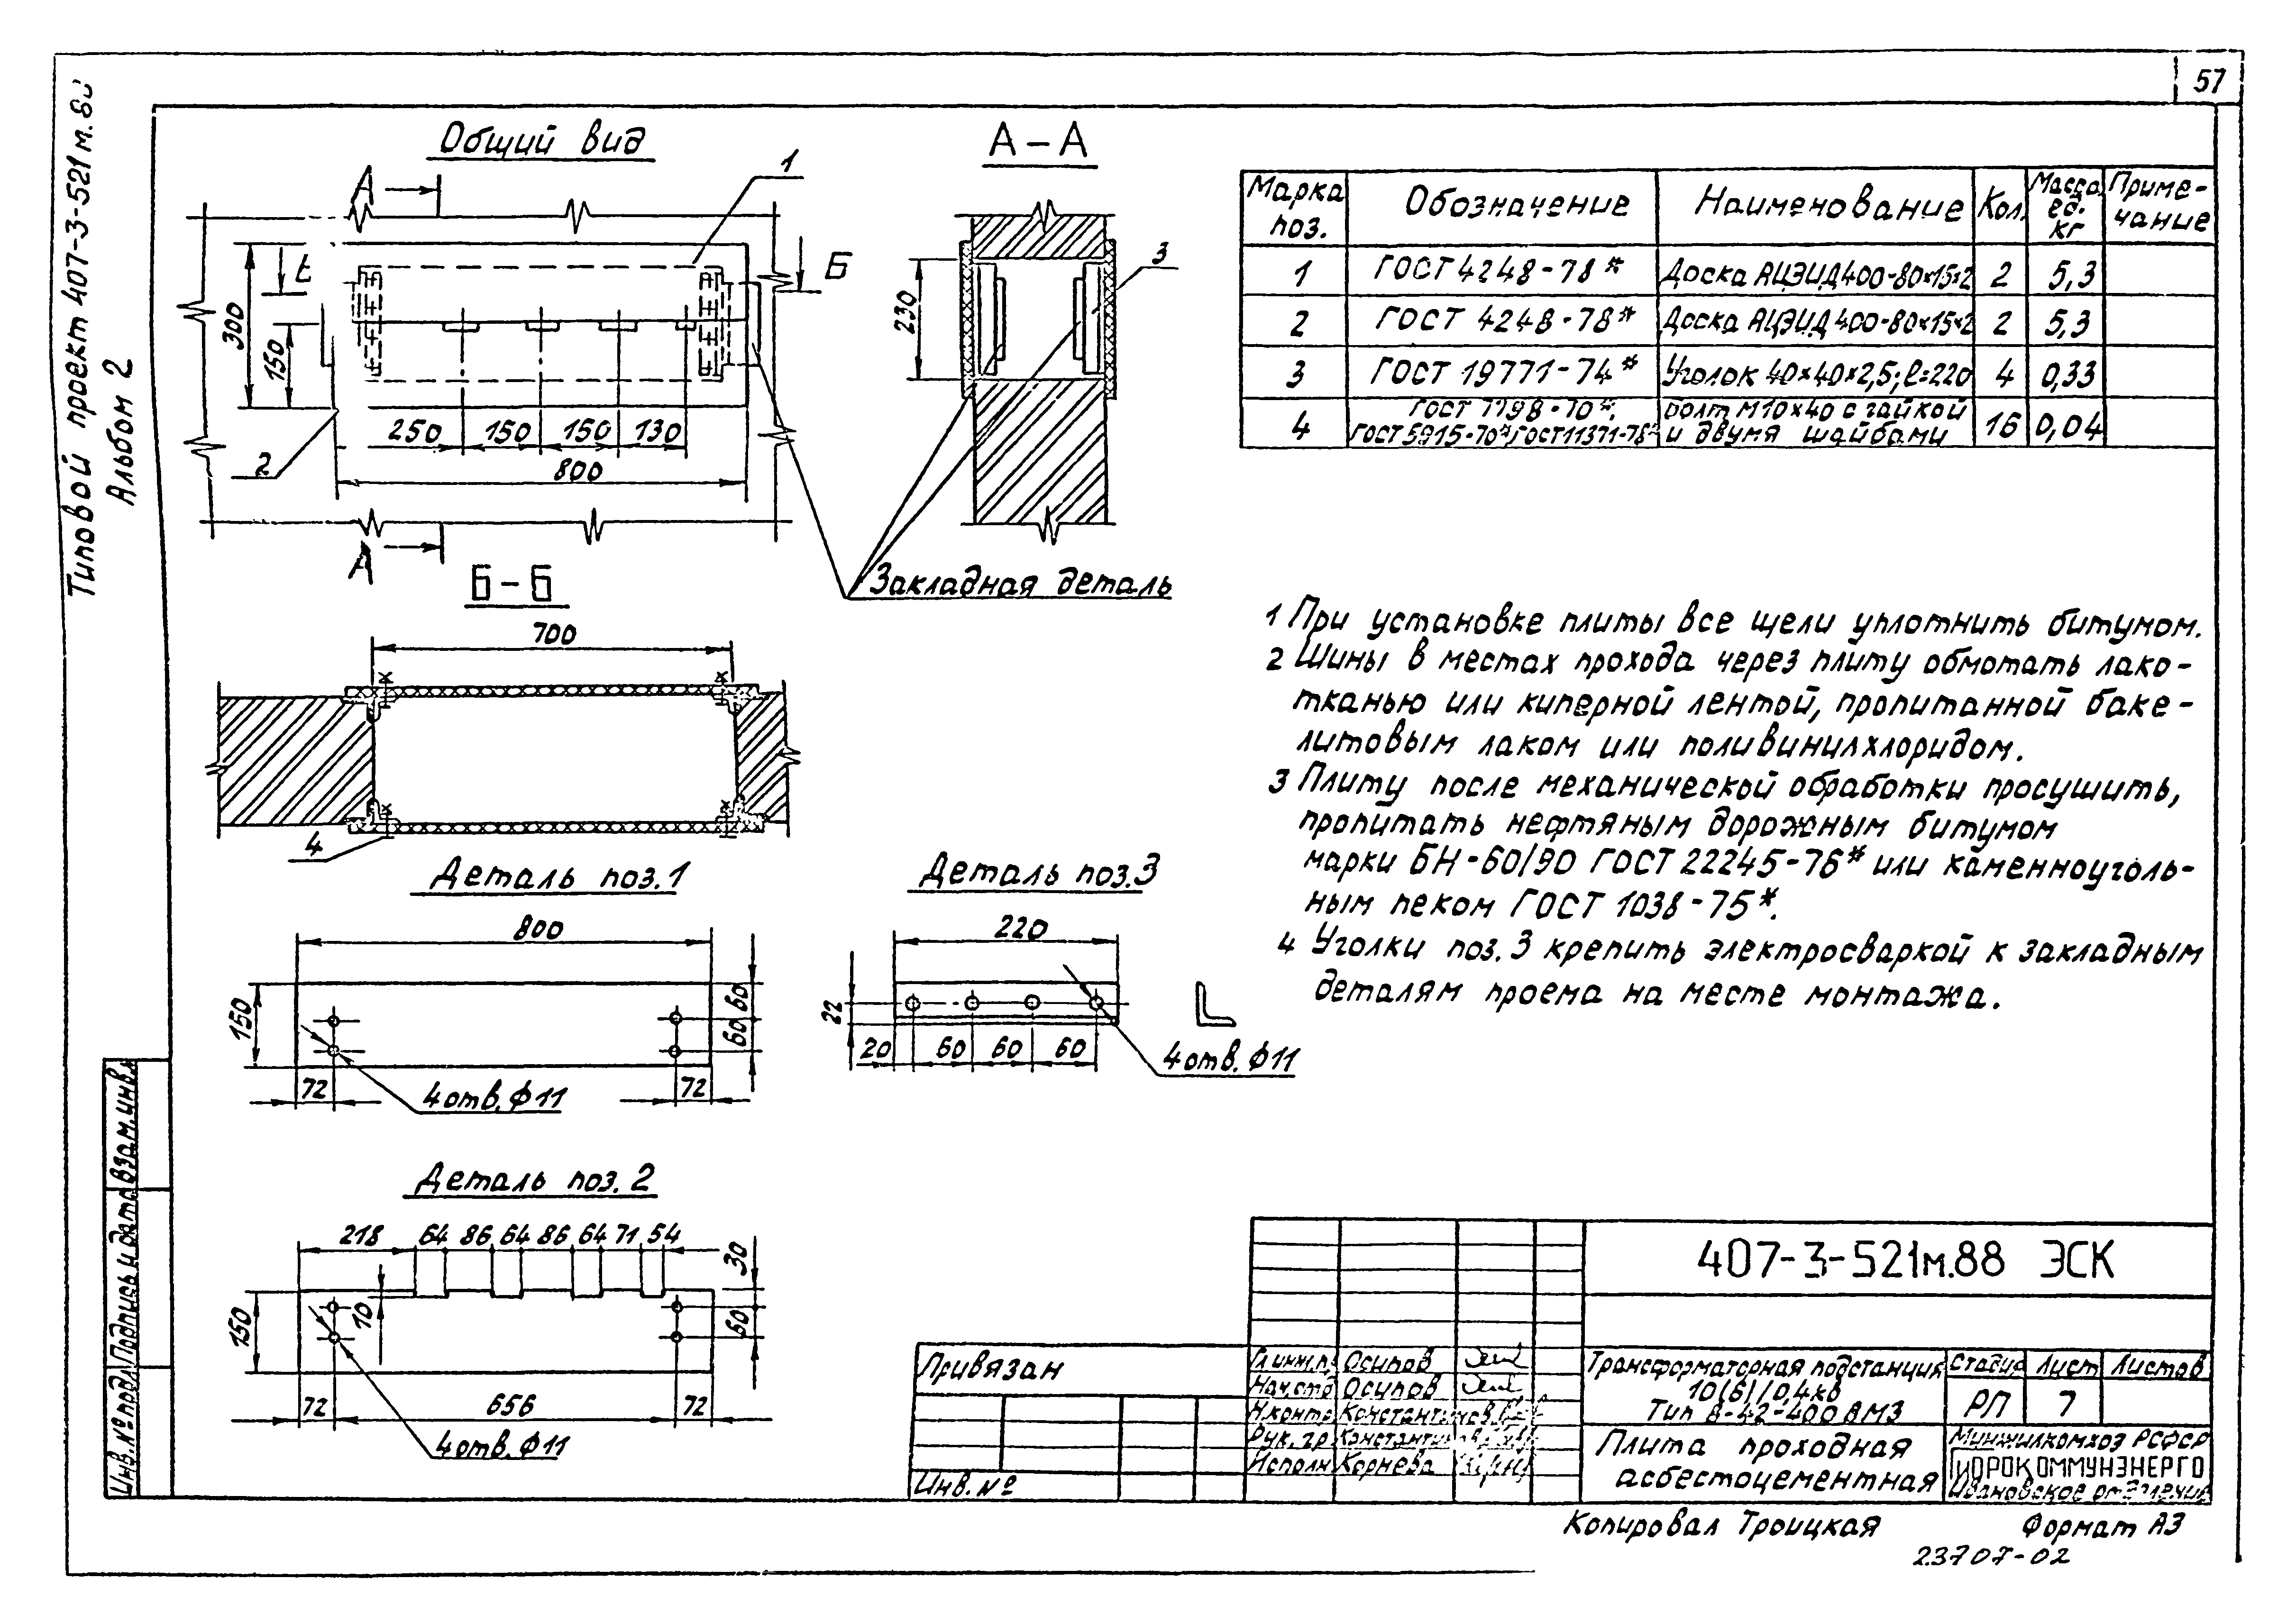 57
Типовой проект 407-3-521м.88
Альбом 2
Общий вид
А
1
Б
300
150
250
150
150
130
800
2
А
А-А
230
3
Закладная деталь
Б-Б
700
4
Марка поз.
Обозначение
Наименование
Кол.
Масса ед. кг
Приме-
чание
1 ГОСТ 4248-78* Доска АЦЭИД 400-80×15×2 2 5,3
2 ГОСТ 4248-78* Доска АЦЭИД 400-80×15×2 2 5,3
3 ГОСТ 19771-74* Уголок 40×40×2,5; ℓ=220 4 0,33
4 ГОСТ 7798-70*, ГОСТ 5915-70*, ГОСТ 11371-78* Болт М10×40 с гайкой и двумя шайбами 16 0,04
1 При установке плиты все щели уплотнить битумом.
2 Шины в местах прохода через плиту обмотать лако-
тканью или киперной лентой, пропитанной баке-
литовым лаком или поливинилхлоридом.
3 Плиту после механической обработки просушить,
пропитать нефтяным дорожным битумом
марки БН-60/90 ГОСТ 22245-76* или каменноуголь-
ным пеком ГОСТ 1038-75*.
4 Уголки поз. 3 крепить электросваркой к закладным
деталям проема на месте монтажа.
Деталь поз.1
800
150
60
60
72
72
4 отв. Ф11
Деталь поз.3
220
22
20
60
60
60
4 отв. Ф11
Деталь поз. 2
218
64
86
64
86
64
71
54
30
10
150
60
72
656
72
4 отв. Ф11
Взам. инв.
Подпись и дата
Инв. № подл.
Привязан
Инв. №
407-3-521м.88 ЭСК
Гл.инж.п. Осипов
Нач.отд Осипов
Н.контр Константинов
Рук. гр. Константинов
Исполн Корнева
Трансформаторная подстанция
10(6)/0,4кв
Тип В-42-400 ВМ3
Стадия
Лист
Листов
РП
7
Плита проходная
асбестоцементная
Минжилкомхоз РСФСР
ГИПРОКОММУНЭНЕРГО
Ивановское отделение
Копировал Троицкая
Формат А3
23707-02